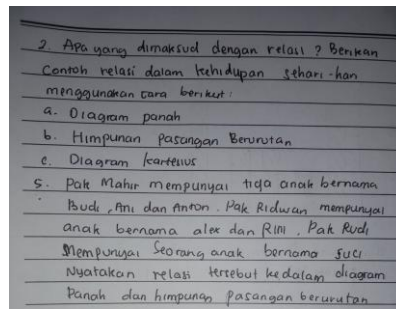 2. Apa yang dimaksud dengan relasi ? Berikan
Contoh relasi dalam kehidupan sehari-hari
menggunakan cara berikut :
a. Diagram panah
b. Himpunan Pasangan Berurutan
c. Diagram kartesius
5. Pak Mahir mempunyai tiga anak bernama
Budi, Ani dan Anton. Pak Ridwan mempunyai
anak bernama alex dan RINI. Pak Rudi
Mempunyai Seorang anak bernama Suci
Nyatakan relasi tersebut kedalam diagram
Panah dan himpunan pasangan berurutan